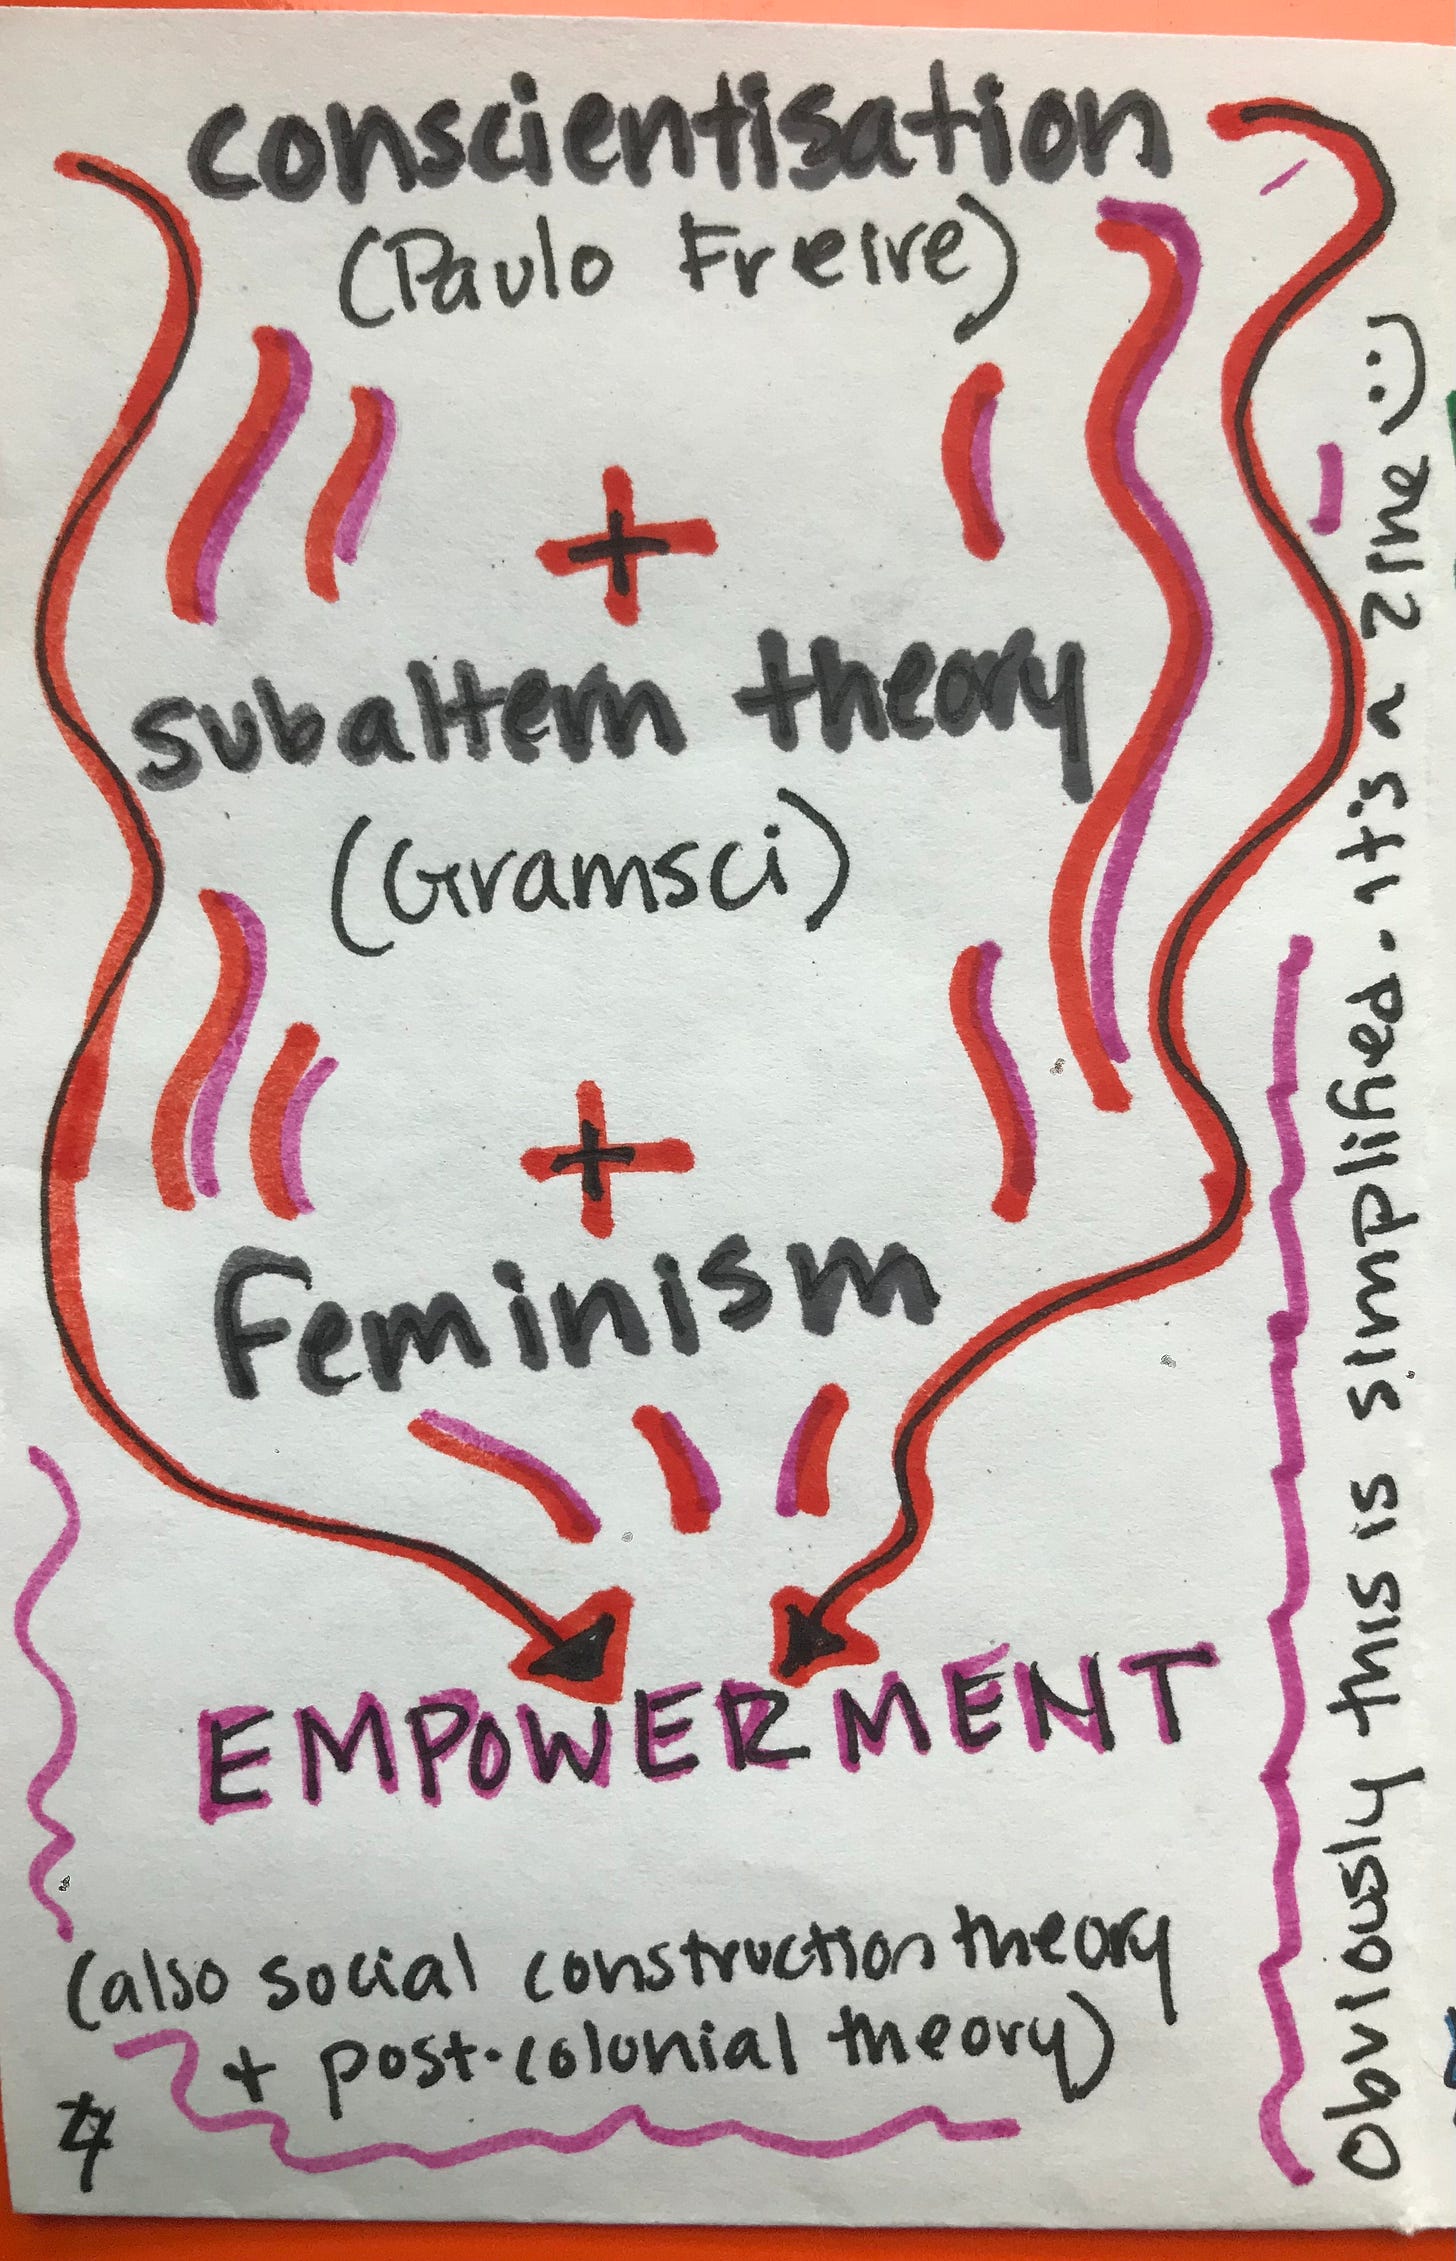 conscientisation
(Paulo Freire)
+
subaltern theory
(Gramsci)
+
Feminism
EMPOWERMENT
(also social construction theory
+ post-colonial theory)
4
Obviously this is simplified. It's a zine :)